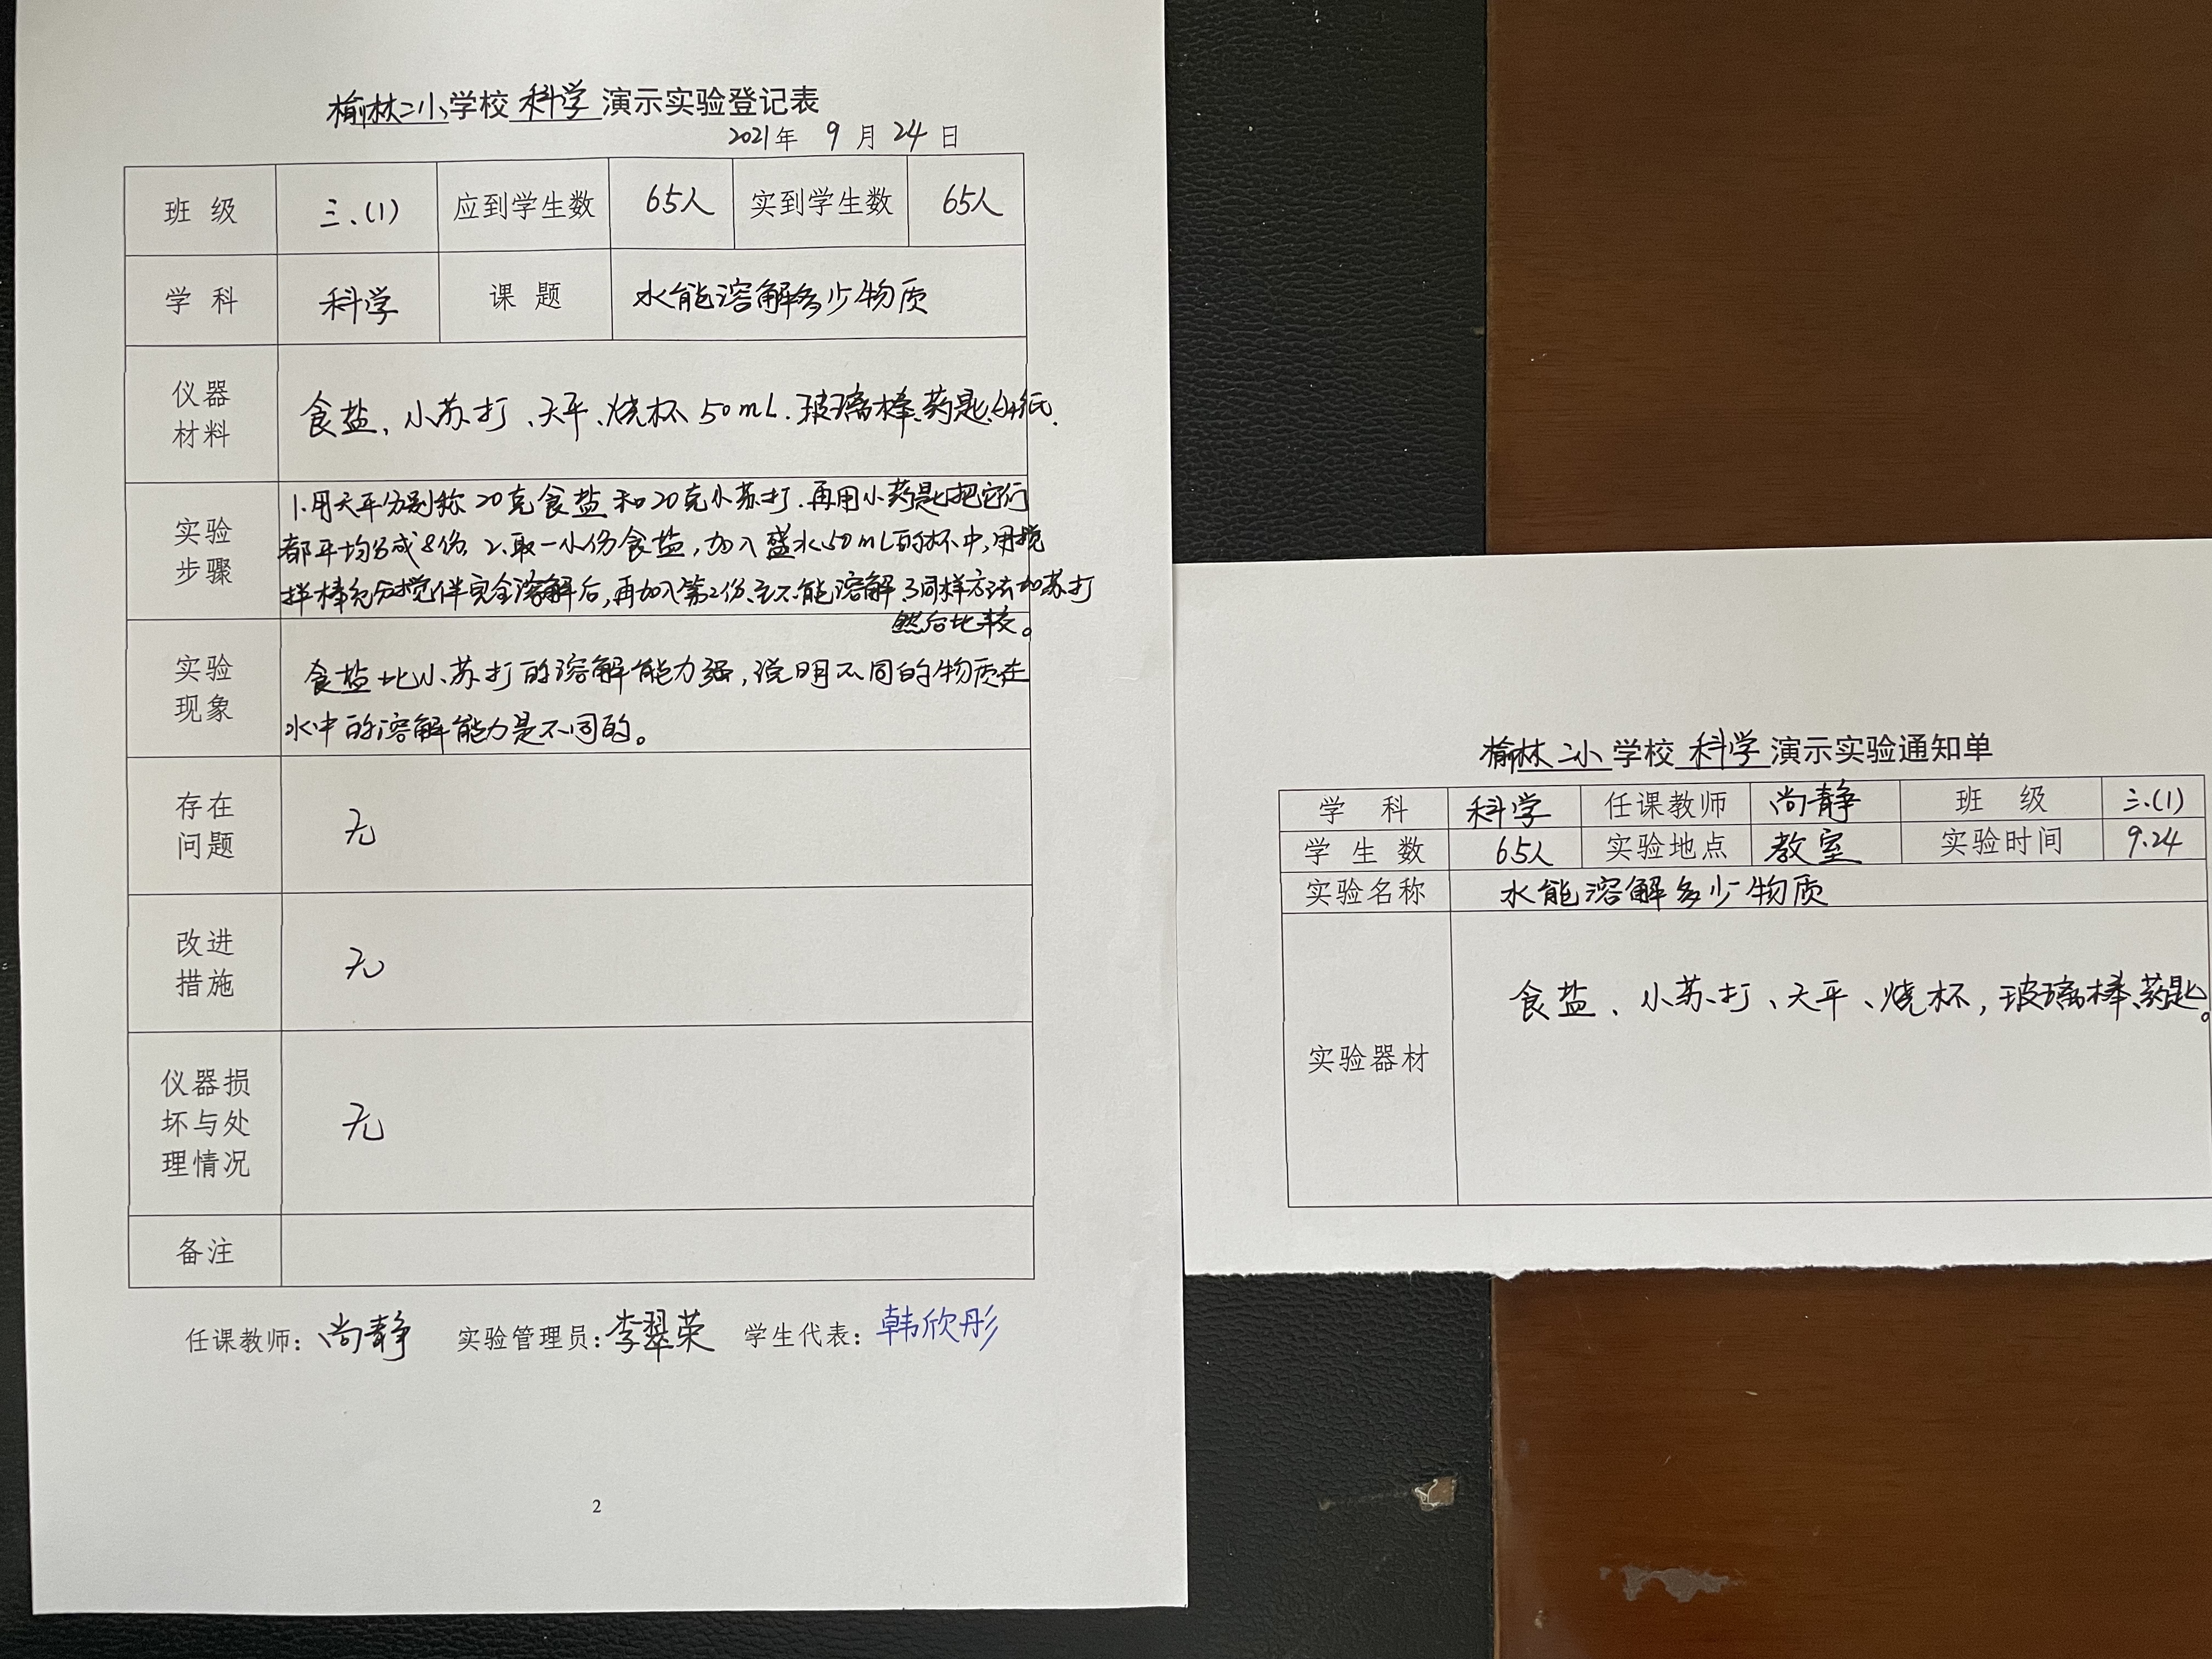 榆林二小学校 科学 演示实验登记表
2021年 9 月 24 日
班 级 三.(1) 应到学生数 65人 实到学生数 65人
学 科 科学 课 题 水能溶解多少物质
仪器
材料
食盐、小苏打、天平、烧杯 50mL、玻璃棒、药匙、白纸.
实验
步骤
1.用天平分别称20克食盐和20克小苏打.再用小药匙把它们
都平均分成8份. 2.取一小份食盐,加入盛水50mL的杯中,用搅
拌棒充分搅伴完全溶解后,再加入第2份、至不能溶解 3同样方法加苏打
然后比较。
实验
现象
食盐比小苏打的溶解能力强,说明不同的物质在
水中的溶解能力是不同的。
存在
问题
无
改进
措施
无
仪器损
坏与处
理情况
无
备注
任课教师：尚静 实验管理员：李翠荣 学生代表：韩欣彤
2
榆林二小 学校 科学 演示实验通知单
学 科 科学 任课教师 尚静 班 级 三.(1)
学 生 数 65人 实验地点 教室 实验时间 9.24
实验名称 水能溶解多少物质
实验器材 食盐、小苏打、天平、烧杯,玻璃棒、药匙。